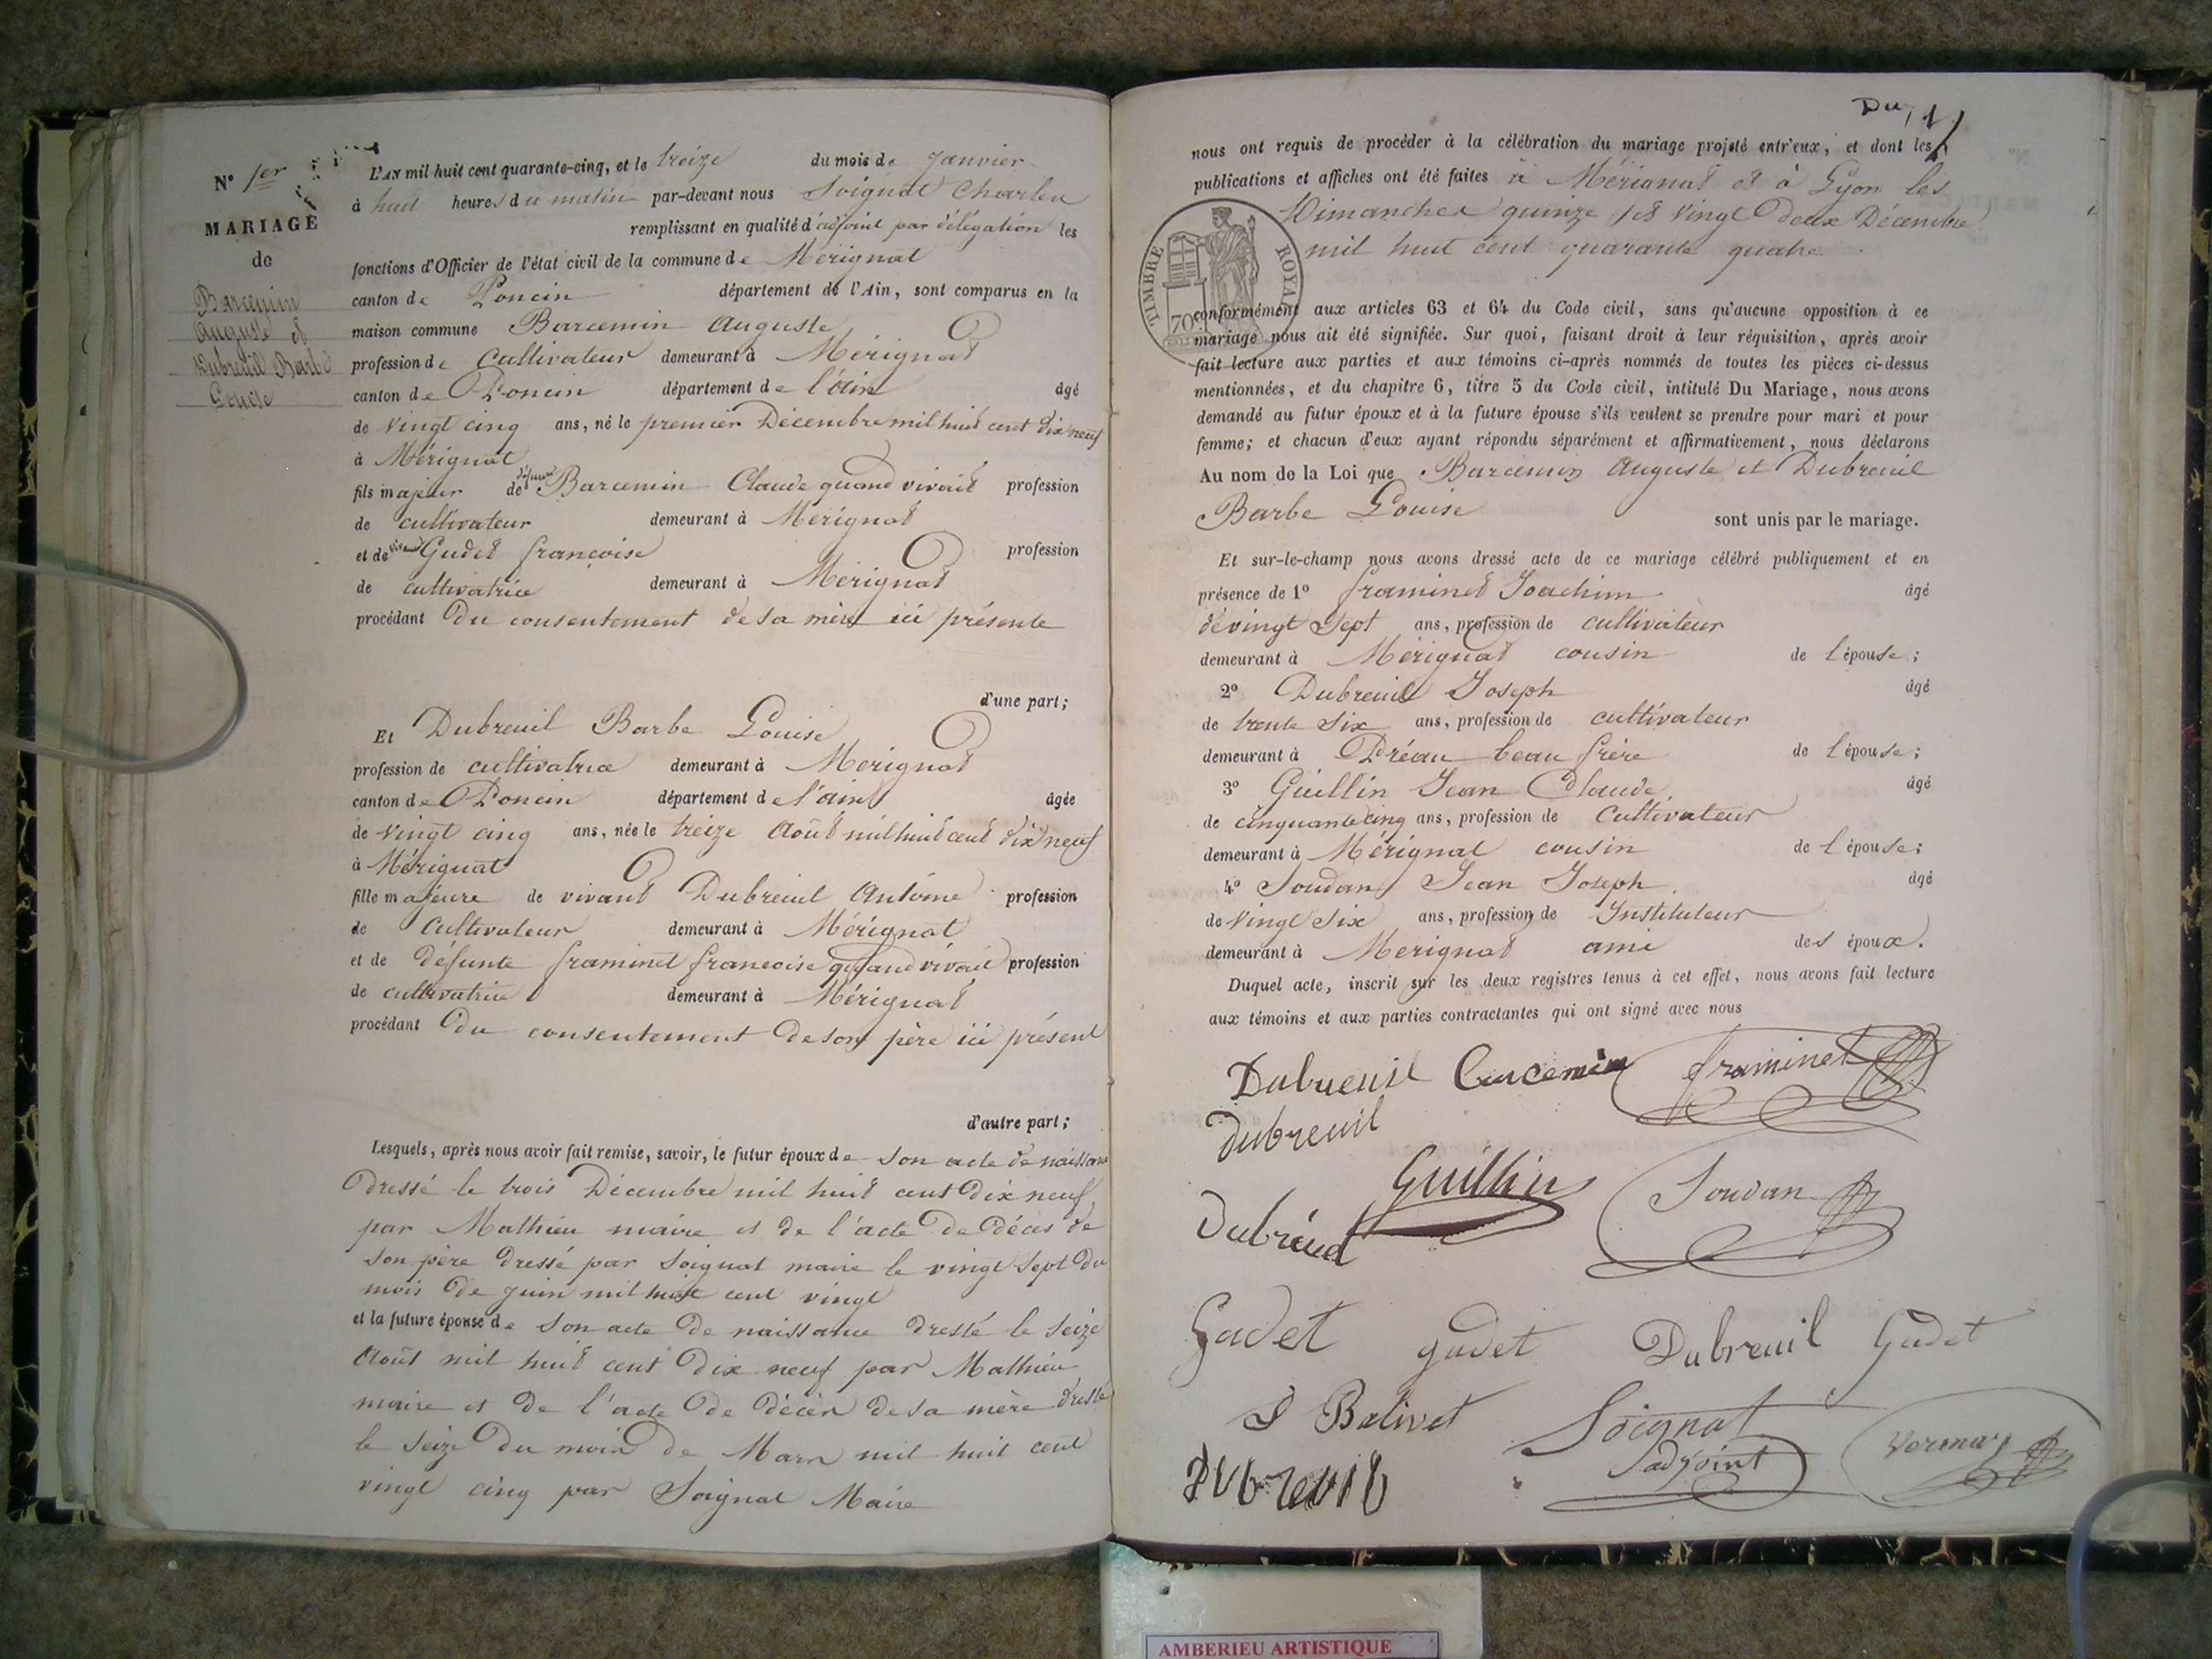 N° 1er
MARIAGE
de
Barcemin
Auguste et
Dubreuil Barbe
Louise
L'AN mil huit cent quarante-cinq, et le treize du mois de Janvier
à huit heures du matin par-devant nous Soignat Charles
remplissant en qualité d'adjoint par délégation les
fonctions d'Officier de l'état civil de la commune de Mérignat
canton de Poncin département de l'Ain, sont comparus en la
maison commune Barcemin Auguste
profession de cultivateur demeurant à Mérignat
canton de Poncin département de l'ain âgé
de vingt cinq ans, né le premier Décembre mil huit cent dix neuf
à Mérignat
fils majeur de défunt Barcemin Claude quand vivait profession
de cultivateur demeurant à Mérignat
et de vivante Gudet françoise profession
de cultivatrice demeurant à Mérignat
procédant du consentement de sa mère ici présente
d'une part;
Et Dubreuil Barbe Louise
profession de cultivatrice demeurant à Mérignat
canton de Poncin département de l'ain âgée
de vingt cinq ans, née le treize Août mil huit cent dix neuf
à Mérignat
fille majeure de vivant Dubreuil Antoine profession
de Cultivateur demeurant à Mérignat
et de défunte framinet francoise quand vivait profession
de cultivatrice demeurant à Mérignat
procédant du consentement de son père ici présent
d'autre part;
Lesquels, après nous avoir fait remise, savoir, le futur époux de son acte de naissance
dressé le trois Décembre mil huit cent dix neuf,
par Mathieu maire et de l'acte de décès de
son père dressé par Soignat maire le vingt sept du
mois de juin mil huit cent vingt
et la future épouse de son acte de naissance dressé le seize
Août mil huit cent dix neuf par Mathieu
maire et de l'acte de décès de sa mère dressé
le seize du mois de Mars mil huit cent
vingt cinq par Soignat Maire
nous ont requis de procéder à la célébration du mariage projeté entr'eux, et dont les
publications et affiches ont été faites à Mérignat et à Lyon les
Dimanches quinze et vingt deux Décembre
mil huit cent quarante quatre
TIMBRE ROYAL
70
conformément aux articles 63 et 64 du Code civil, sans qu'aucune opposition à ce
mariage nous ait été signifiée. Sur quoi, faisant droit à leur réquisition, après avoir
fait lecture aux parties et aux témoins ci-après nommés de toutes les pièces ci-dessus
mentionnées, et du chapitre 6, titre 5 du Code civil, intitulé Du Mariage, nous avons
demandé au futur époux et à la future épouse s'ils veulent se prendre pour mari et pour
femme; et chacun d'eux ayant répondu séparément et affirmativement, nous déclarons
Au nom de la Loi que Barcemin Auguste et Dubreuil
Barbe Louise sont unis par le mariage.
Et sur-le-champ nous avons dressé acte de ce mariage célébré publiquement et en
présence de 1° framinet Joachim âgé
de vingt sept ans, profession de cultivateur
demeurant à Mérignat cousin de l'épouse;
2° Dubreuil Joseph âgé
de trente six ans, profession de cultivateur
demeurant à Préau beau frère de l'épouse;
3° Guillin Jean Claude âgé
de cinquante cinq ans, profession de Cultivateur
demeurant à Mérignat cousin de l'épouse;
4° Soudan Jean Joseph âgé
de vingt six ans, profession de Instituteur
demeurant à Merignat ami des époux.
Duquel acte, inscrit sur les deux registres tenus à cet effet, nous avons fait lecture
aux témoins et aux parties contractantes qui ont signé avec nous
Dubreuil Barcemin framinet
Dubreuil
Guillin Soudan
Dubreuil
Gudet gudet Dubreuil Gudet
Balivet Soignat
adjoint
Dubreuil
AMBERIEU ARTISTIQUE